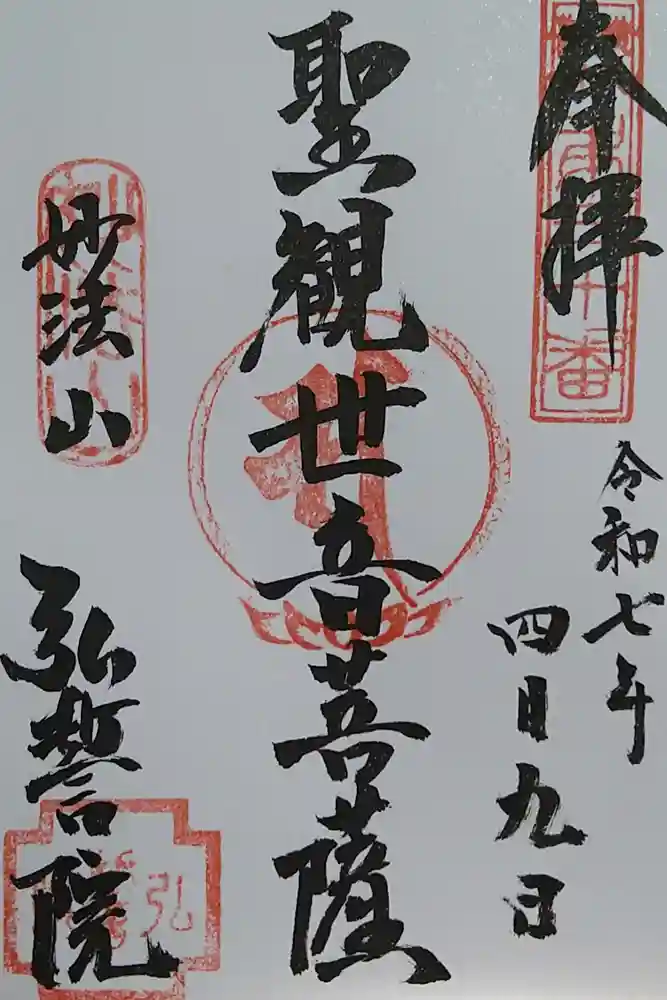 奉拝
令和七年
四月九日
聖觀世音菩薩
妙法山
弘誓院